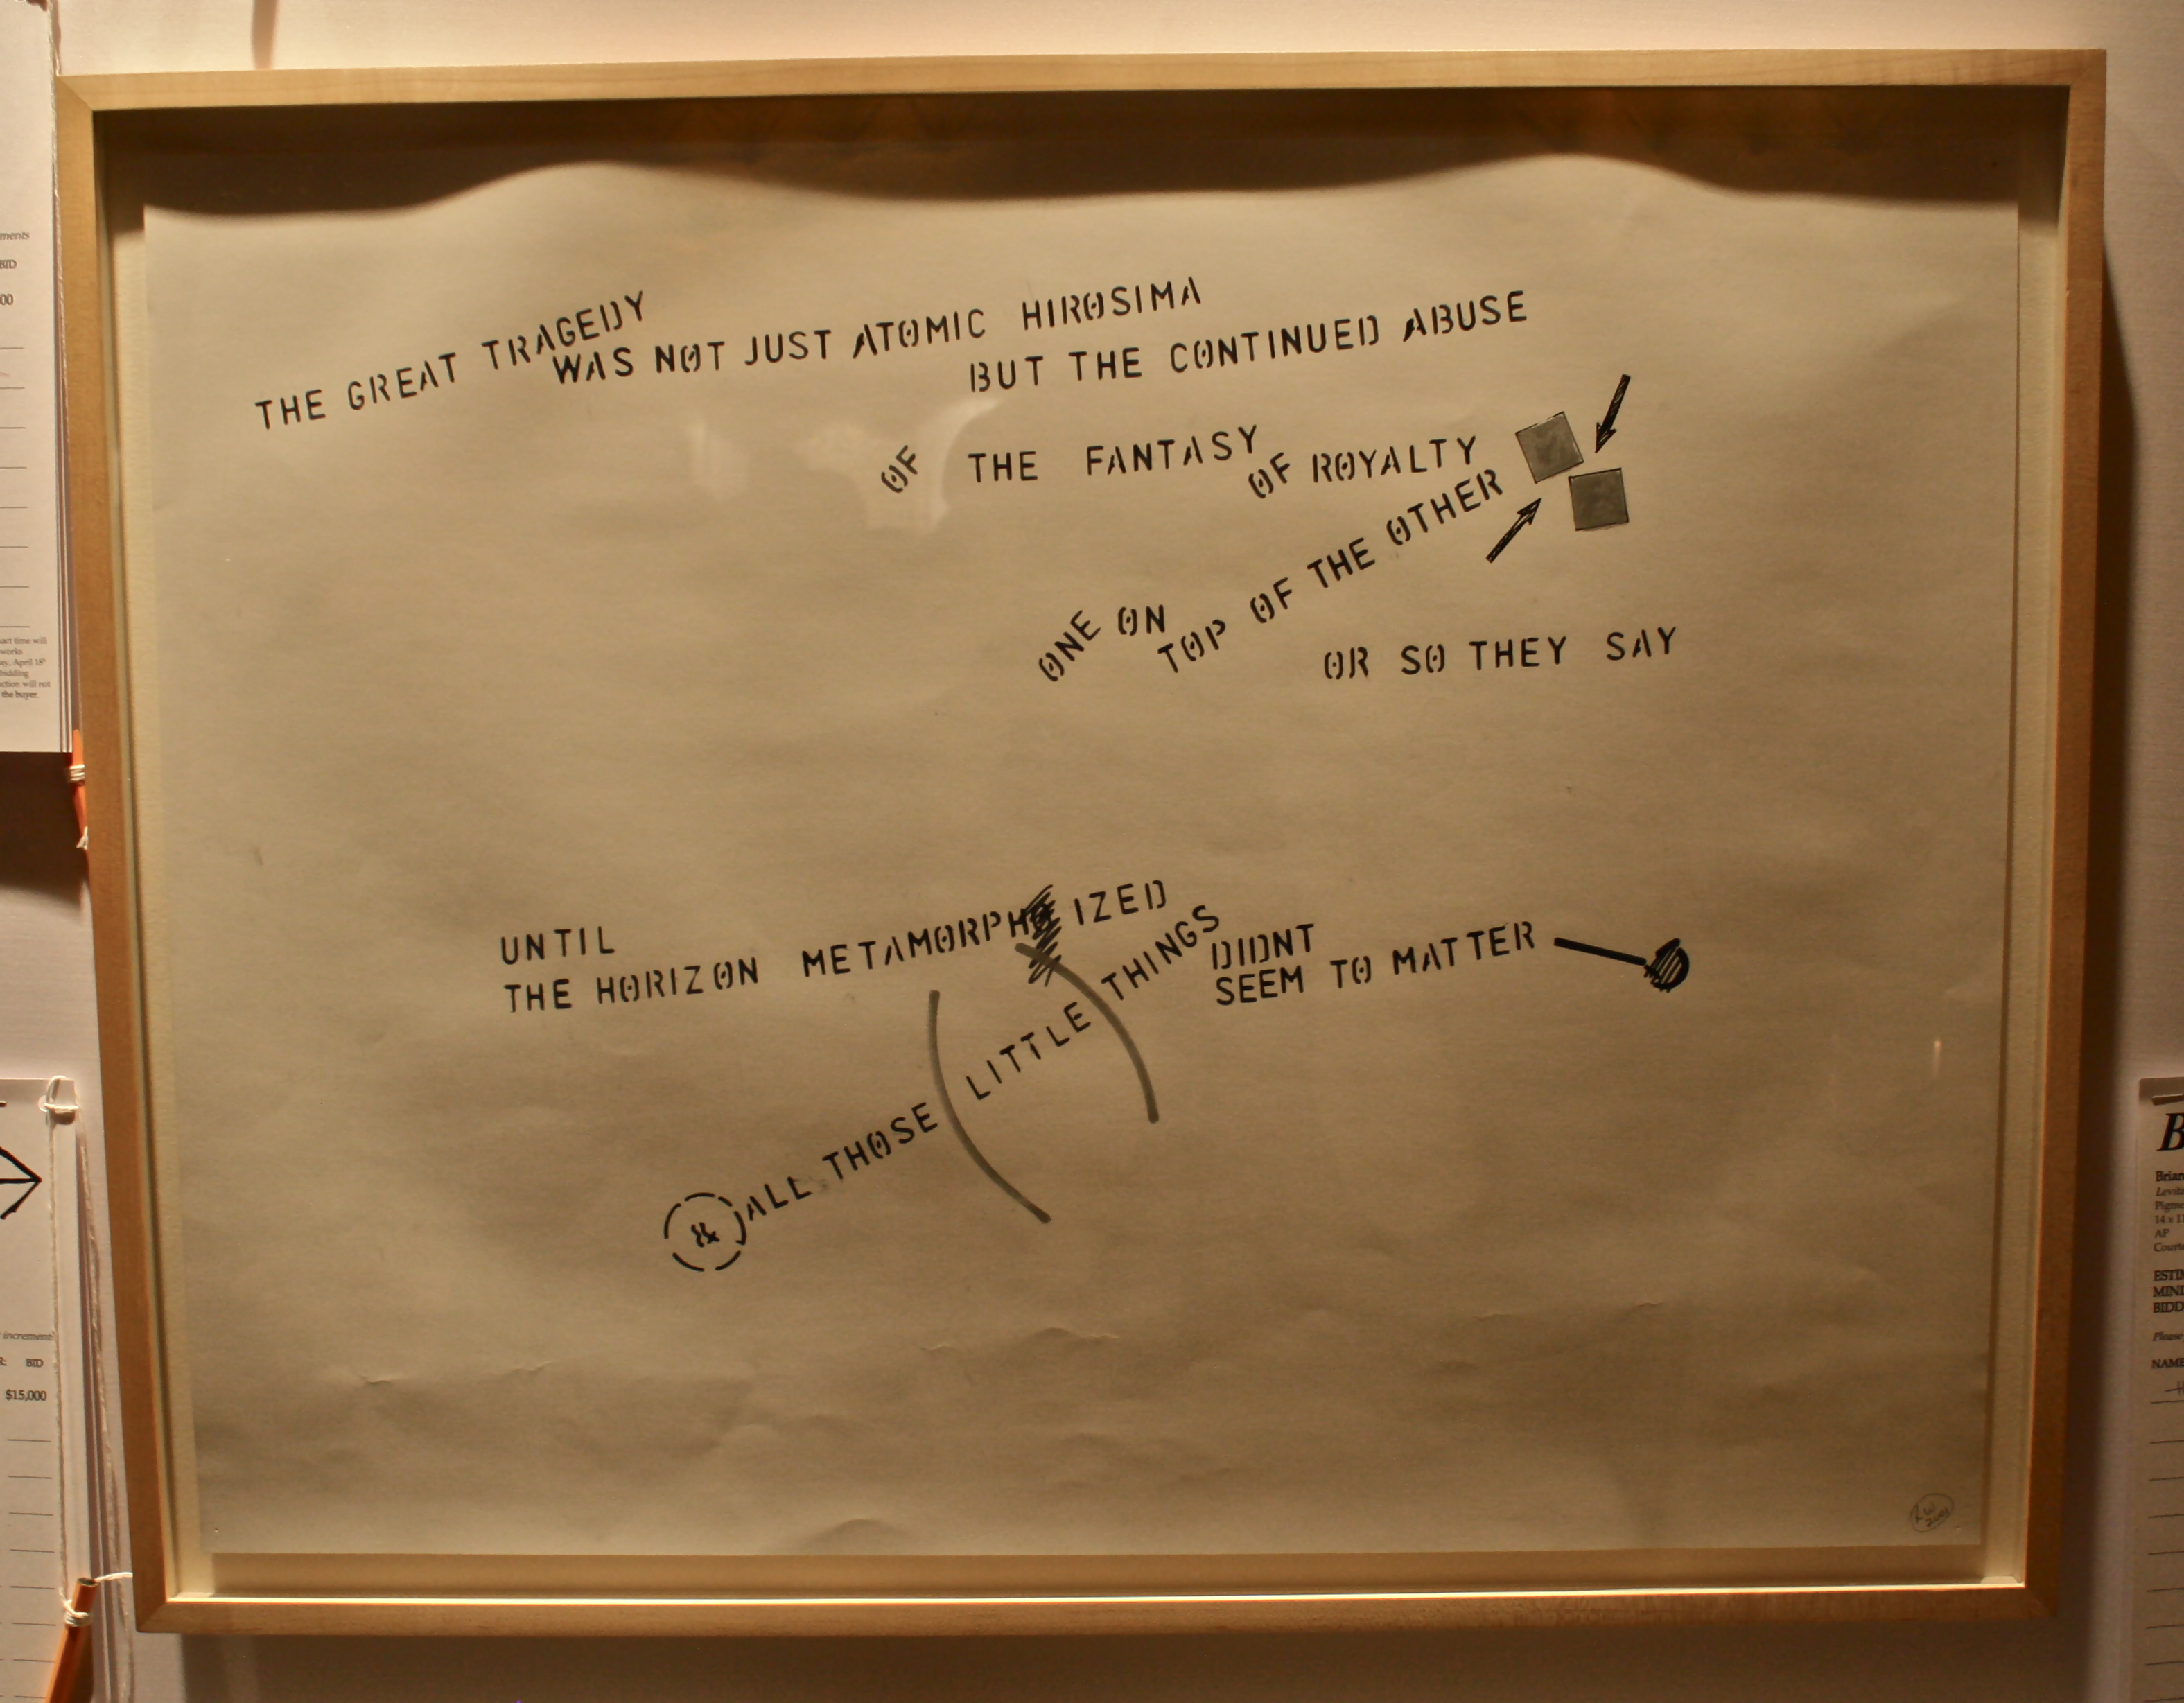 THE GREAT TRAGEDY
WAS NOT JUST ATOMIC HIROSIMA
BUT THE CONTINUED ABUSE
OF THE FANTASY
OF ROYALTY
ONE ON
TOP OF THE OTHER
OR SO THEY SAY
UNTIL
THE HORIZON METAMORPH IZED
& ALL THOSE (LITTLE) THINGS
DIDNT
SEEM TO MATTER
ments
BID
00
act time will
works
ay, April 18
bidding
ction will not
the buyer.
increment
R: BID
$15,000
B
Brian
Levita
Pigme
14 x 11
AP
Courte
ESTIM
MINI
BIDD
Please
NAME